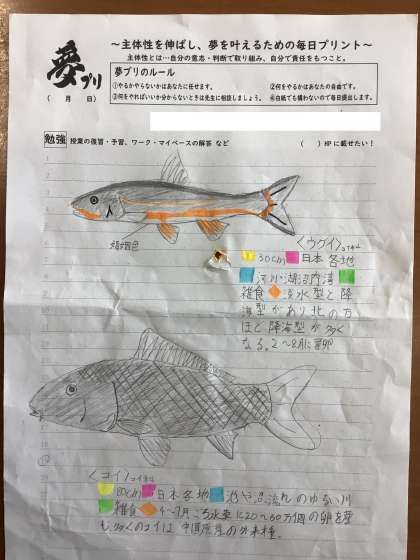 夢プリ
～主体性を伸ばし、夢を叶えるための毎日プリント～
主体性とは…自分の意志・判断で取り組み、自分で責任をもつこと。
（　月　日）
夢プリのルール
①やるかやらないかはあなたに任せます。　②何をやるかはあなたの自由です。
③何をやればいいか分からないときは先生に相談しましょう。　④白紙でも構わないので毎日提出します。
勉強　授業の復習・予習、ワーク・マイペースの解答 など　（　）HPに載せたい！
婚姻色
〈ウグイ〉コイ科
30cm 日本各地
河川・湖沼内湾
雑食 淡水型と降
海型があり北の方
ほど降海型が多く
なる。2～8月に産卵
〈コイ〉コイ科
80cm 日本各地 池や沼、流れのゆるい川
雑食 4～7月ごろ水草に20～60万個の卵を産
む 多くのコイは中国原産の外来種。